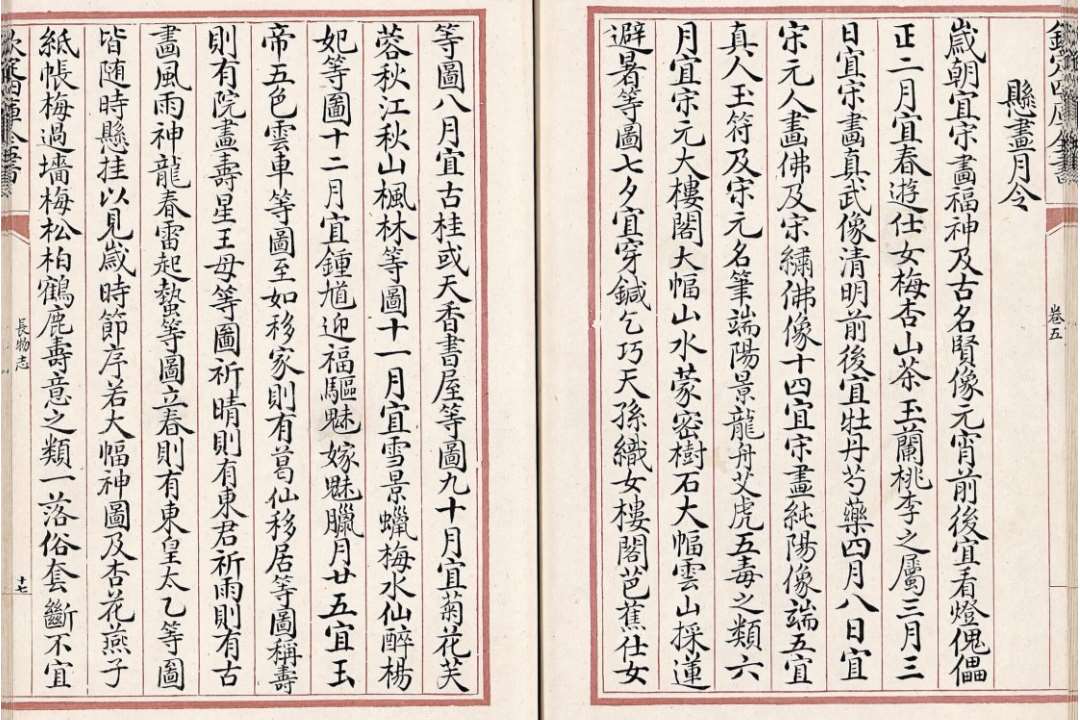 欽定四庫全書
卷五
懸畫月令
歲朝宜宋畫福神及古名賢像元宵前後宜看燈傀儡
正二月宜春遊仕女梅杏山茶玉蘭桃李之屬三月三
日宜宋畫真武像清明前後宜牡丹芍藥四月八日宜
宋元人畫佛及宋繡佛像十四宜宋畫純陽像端五宜
真人玉符及宋元名筆端陽景龍舟艾虎五毒之類六
月宜宋元大樓閣大幅山水蒙密樹石大幅雲山採蓮
避暑等圖七夕宜穿鍼乞巧天孫織女樓閣芭蕉仕女
等圖八月宜古桂或天香書屋等圖九十月宜菊花芙
蓉秋江秋山楓林等圖十一月宜雪景蠟梅水仙醉楊
妃等圖十二月宜鍾馗迎福驅魅嫁魅臘月廿五宜玉
帝五色雲車等圖至如移家則有葛仙移居等圖稱壽
則有院畫壽星王母等圖祈晴則有東君祈雨則有古
畫風雨神龍春雷起蟄等圖立春則有東皇太乙等圖
皆随時懸挂以見歲時節序若大幅神圖及杏花燕子
紙帳梅過墻梅松柏鶴鹿壽意之類一落俗套斷不宜
欽定四庫全書
長物志
十七